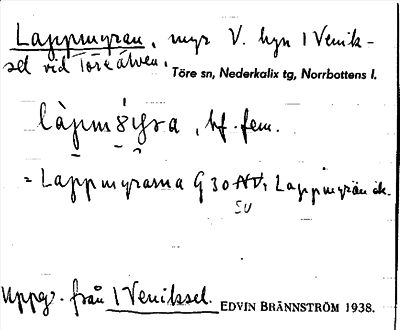 Lappmyran, myr V. byn 1 Venik-
sel vid Töreälven.
Töre sn, Nederkalix tg, Norrbottens l.
bf. fem.
= Lappmyrarna G 30 NV, Lappmyrän ek.
SV
Uppg. från 1 Veniksel. EDVIN BRÄNNSTRÖM 1938.